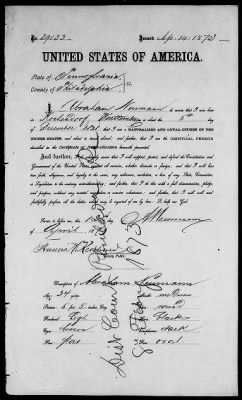 No. 29133
Issued Ap. 14. 1873
UNITED STATES OF AMERICA.
State of Pennsylvania
County of Philadelphia } ss.
I Abraham Neumann do swear that I was born
in
on the 5th day of
December that I am a NATURALIZED AND LOYAL CITIZEN OF THE
UNITED STATES, and about to travel abroad; and further, that I am the IDENTICAL PERSON
described in the CERTIFICATE OF NATURALIZATION herewith presented.
And further, do swear that I will support, protect, and defend the Constitution and
Government of the United States against all enemies, whether domestic or foreign; and that I will bear
true faith, allegiance, and loyalty to the same, any ordinance, resolution, or law of any State, Convention,
or Legislature to the contrary notwithstanding; and further, that I do this with a full determination, pledge,
and purpose, without any mental reservation or evasion whatsoever; and further, that I will well and
faithfully perform all the duties which may be required of me by law: So help me God.
Sworn to before me, this 12th day
of April 1873
A Neumann
Notary Public.
Dist Court
1873
Description of Abraham Neumann
Age: 34 years
Mouth: medium
Stature: 5 ft 5 inches, Eng.
Chin: round
Forehead: high
Hair: black
Eyes: brown
Complexion: dark
Nose:
Face: oval